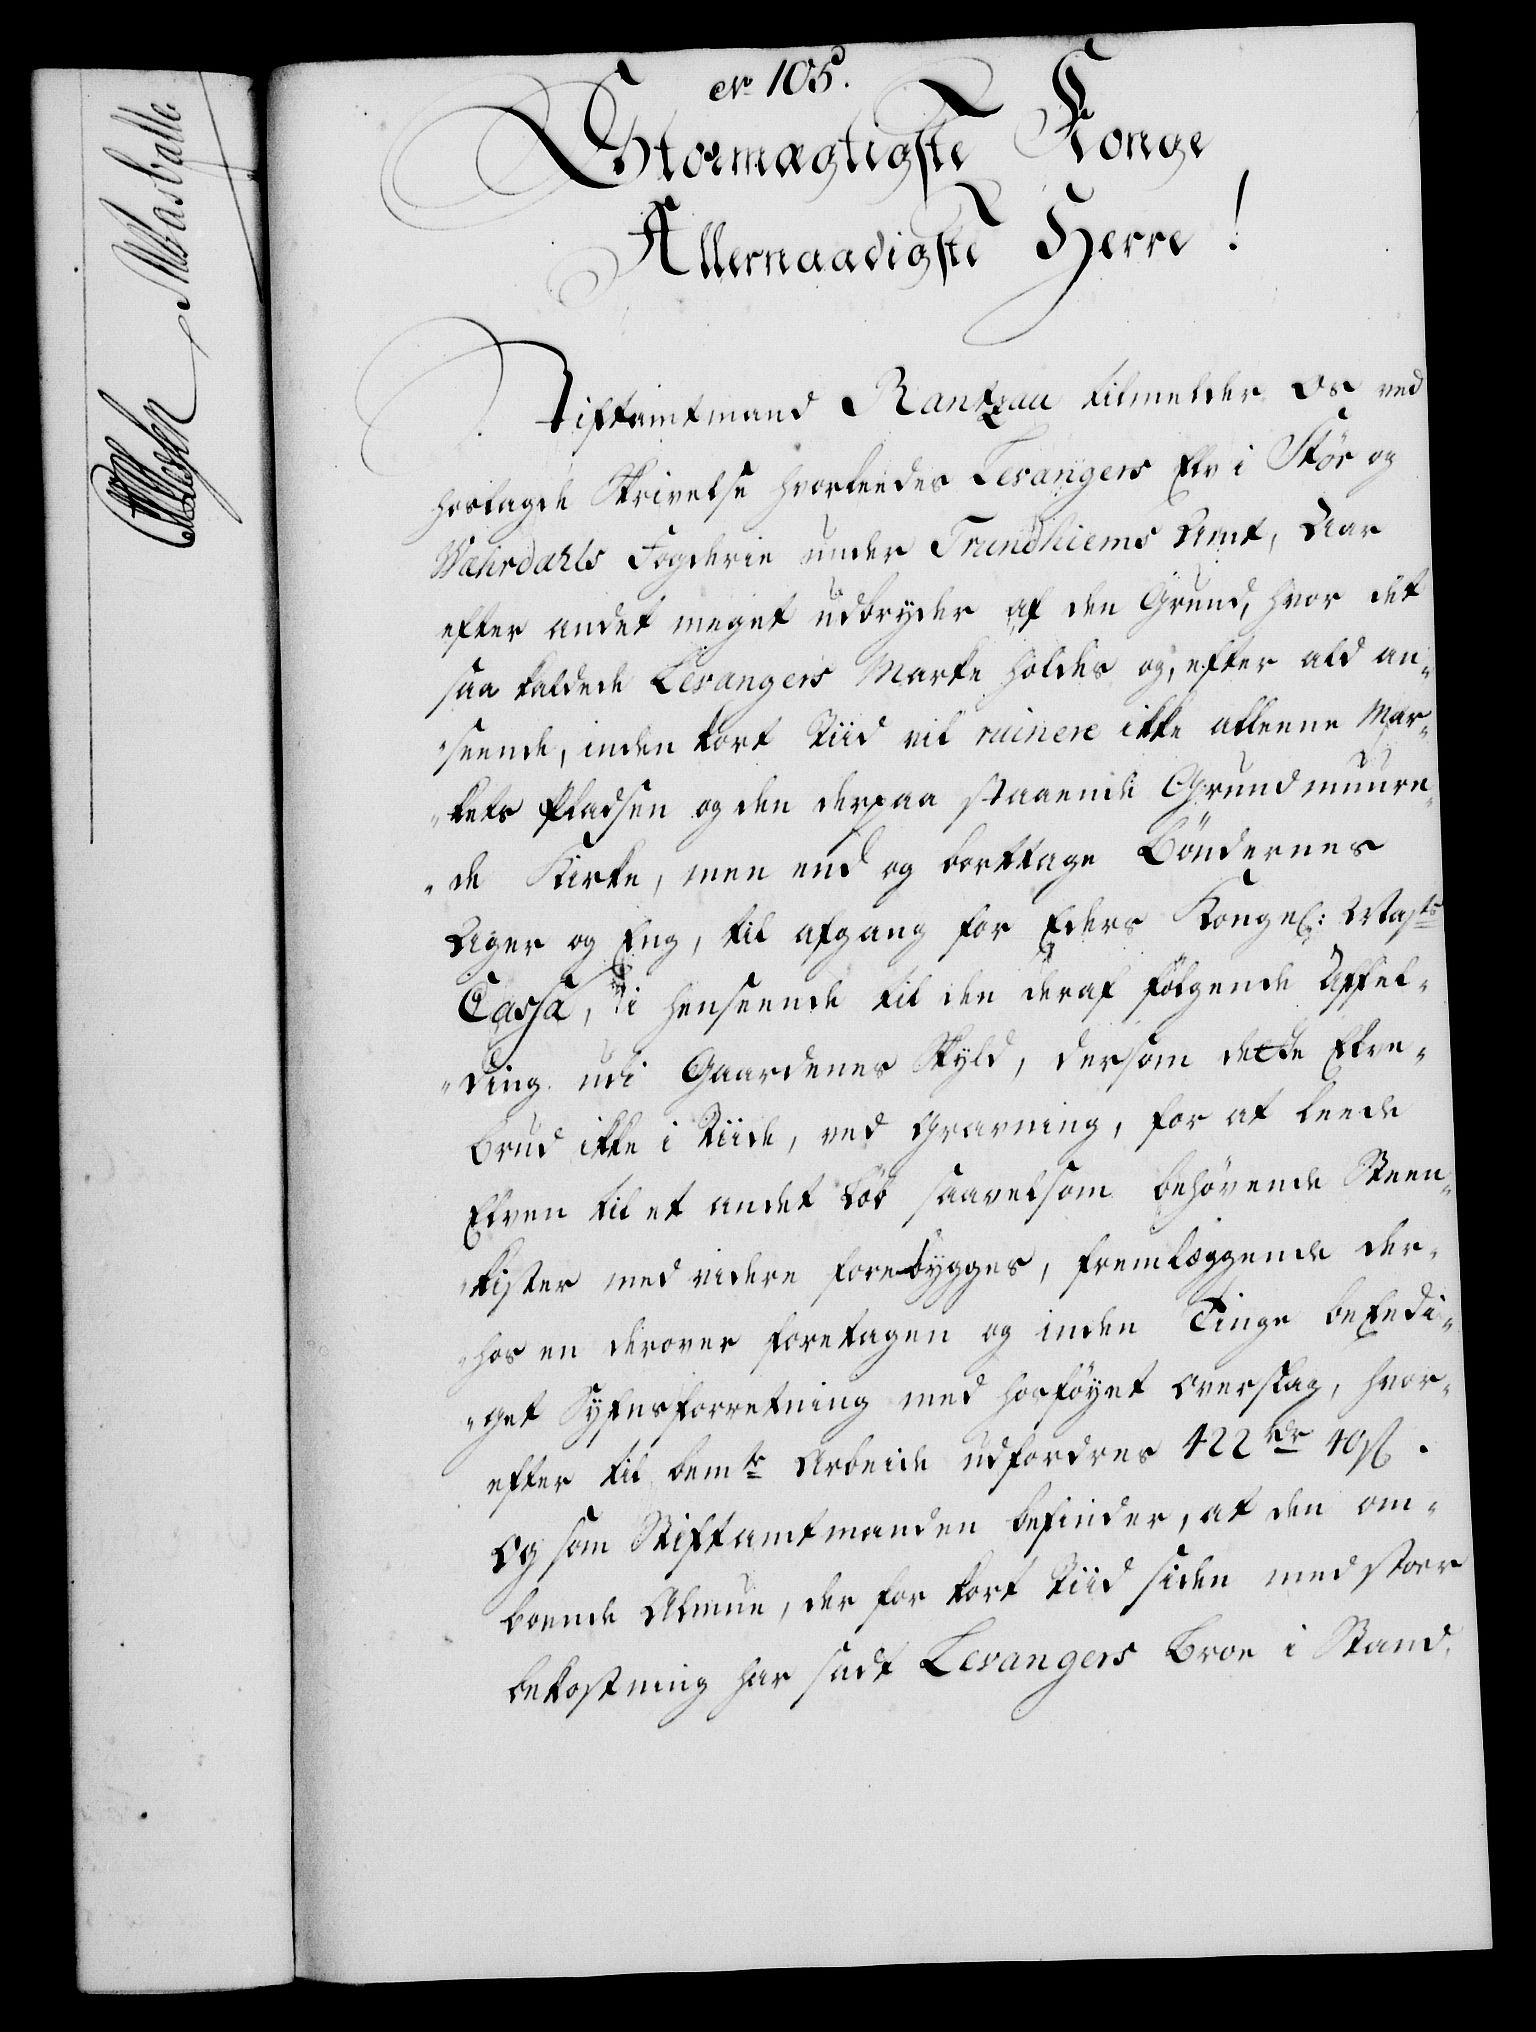 No 105.
Stormægtigste Konge
Allernaadigste Herre!
Stiftamtmand Rantzau tilmelder Os ved
hoslagde Skrivelse hvorledes Levangers Elv i Stör og
Wæhrdahls Fogderie under Trundhiems Amt, Aar
efter andet meget udbryder af den Grund, hvor det
saa kaldede Levangers Marke holdes og, efter ald an-
seende, inden kort Tiid vil ruinere ikke alleene Mar-
kets Pladsen og den derpaa staaende Grundmuure-
de Kirke, men end og borttage Böndernes
Ager og Eng, til afgang for Eders Kongel: Majts
Cassa, i henseende til den deraf fölgende Affel-
ding udi Gaardenes Skyld, dersom dette Elve-
brud ikke i Tiide, ved Gravning, for at leede
Elven til et andet Löb saavelsom behövende Steen-
kister med videre forebygges, fremlæggende der-
hos en derover foretagen og inden Tinge beEedi-
get Synsforretning med hosföyet Overslag, hvor-
efter til bemte Arbeide udfordres 422 rdr 40 s.
Og som Stiftamtmanden befinder, at den om-
boende Almue, der for kort Tiid siden med stoer
bekostning har sadt Levangers Broe i Stand,